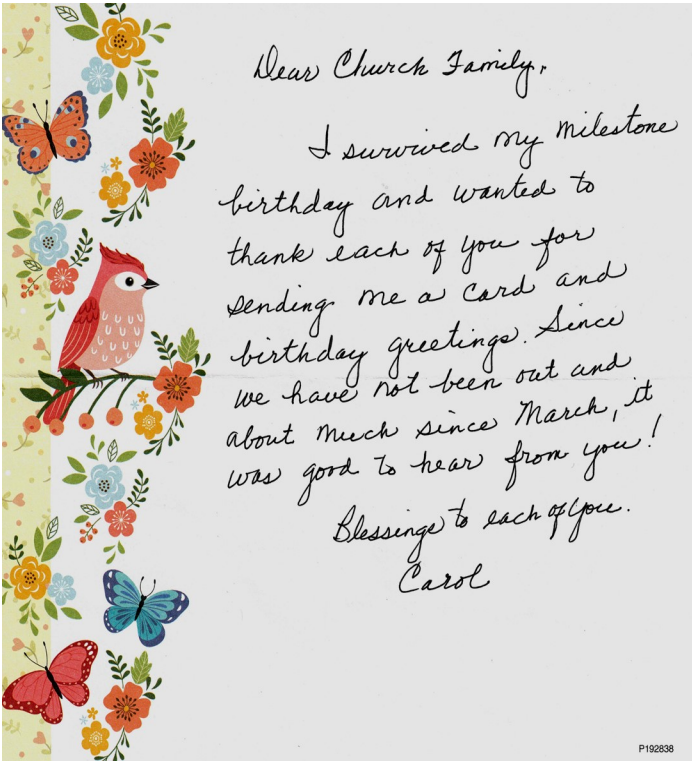 Dear Church Family,
I survived my milestone
birthday and wanted to
thank each of you for
sending me a card and
birthday greetings. Since
we have not been out and
about much since March, it
was good to hear from you!
Blessings to each of you.
Carol
P192838